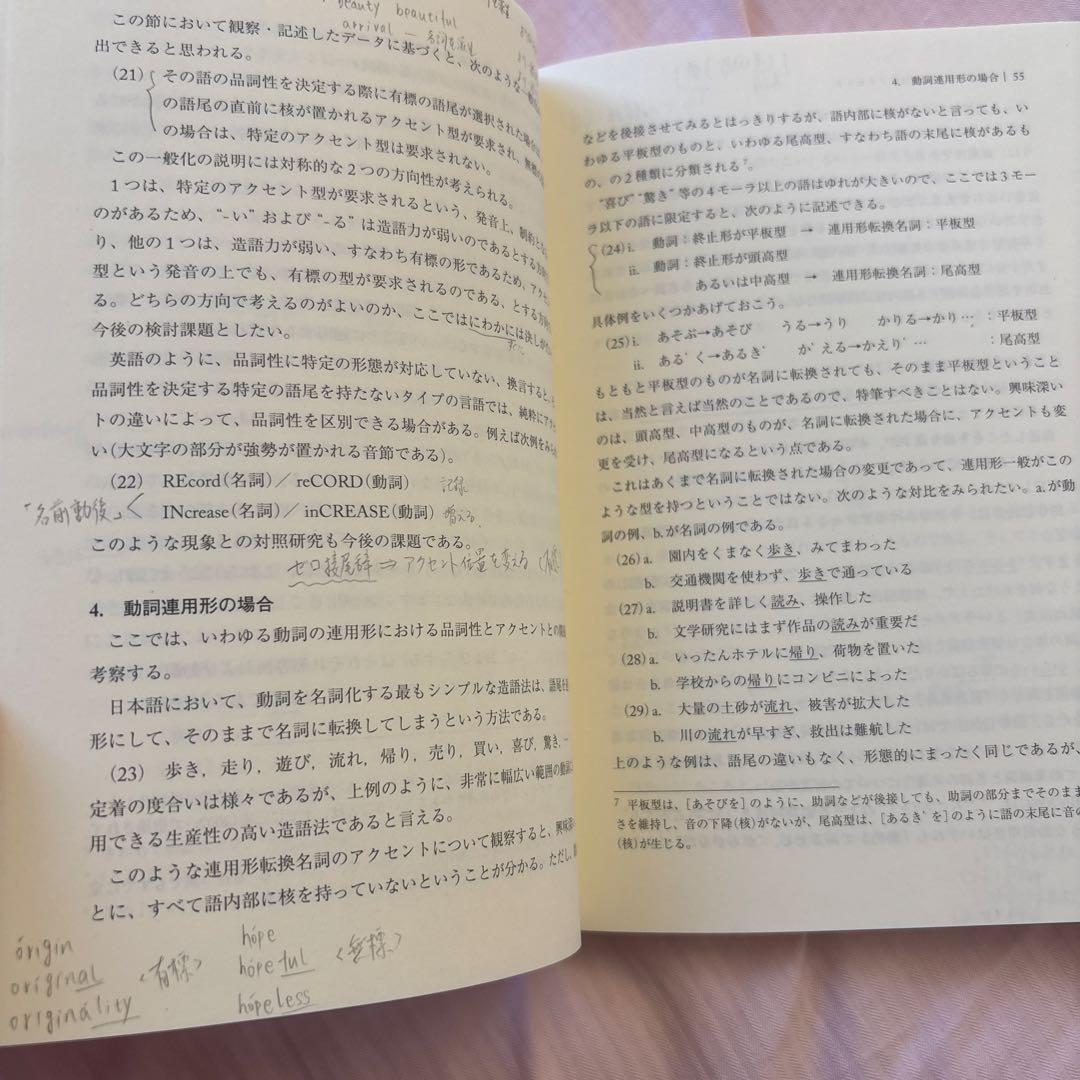 beauty beautiful
arrival — 名詞を派生
この節において観察・記述したデータに基づくと、次のような一般
出できると思われる。
(21) その語の品詞性を決定する際に有標の語尾が選択された場合
の語尾の直前に核が置かれるアクセント型が要求され、無標
の場合は、特定のアクセント型は要求されない。
この一般化の説明には対称的な2つの方向性が考えられる。
1つは、特定のアクセント型が要求されるという、発音上、制約と
のがあるため、“-い” および “-る” は造語力が弱いのであるとする方向
り、他の1つは、造語力が弱い、すなわち有標の形であるため、アクセ
型という発音の上でも、有標の型が要求されるのである、とする方
る。どちらの方向で考えるのがよいのか、ここではにわかには決しが
すぐに
今後の検討課題としたい。
英語のように、品詞性に特定の形態が対応していない、換言すると、
品詞性を決定する特定の語尾を持たないタイプの言語では、純粋にア
トの違いによって、品詞性を区別できる場合がある。例えば次例をみ
い(大文字の部分が強勢が置かれる音節である)。
(22) REcord(名詞)／reCORD(動詞) 記録
「名前動後」< INcrease(名詞)／inCREASE(動詞) 増える
このような現象との対照研究も今後の課題である。
ゼロ接尾辞 ⇒ アクセント位置を変える
4. 動詞連用形の場合
ここでは、いわゆる動詞の連用形における品詞性とアクセントとの
考察する。
日本語において、動詞を名詞化する最もシンプルな造語法は、語尾を
形にして、そのままで名詞に転換してしまうという方法である。
(23) 歩き，走り，遊び，流れ，帰り，売り，買い，喜び，驚き，
定着の度合いは様々であるが、上例のように、非常に幅広い範囲の動詞
用できる生産性の高い造語法であると言える。
このような連用形転換名詞のアクセントについて観察すると、興味深
とに、すべて語内部に核を持っていないということが分かる。ただし、
órigin
original
originálity
<有標>
hópe
hópeful
hópeless
<無標>
4. 動詞連用形の場合 | 55
などを後接させてみるとはっきりするが、語内部に核がないと言っても、い
わゆる平板型のものと、いわゆる尾高型、すなわち語の末尾に核があるも
の、の2種類に分類される⁷。
“喜び” “驚き” 等の4モーラ以上の語はゆれが大きいので、ここでは3モー
ラ以下の語に限定すると、次のように記述できる。
(24) i. 動詞：終止形が平板型 → 連用形転換名詞：平板型
ii. 動詞：終止形が頭高型
あるいは中高型 → 連用形転換名詞：尾高型
具体例をいくつかあげておこう。
(25) i. あそぶ→あそび うる→うり かりる→かり… ：平板型
ii. ある’く→あるき’ か’える→かえり’… ：尾高型
もともと平板型のものが名詞に転換されても、そのまま平板型ということ
は、当然と言えば当然のことであるので、特筆すべきことはない。興味深い
のは、頭高型、中高型のものが、名詞に転換された場合に、アクセントも変
更を受け、尾高型になるという点である。
これはあくまで名詞に転換された場合の変更であって、連用形一般がこの
ような型を持つということではない。次のような対比をみられたい。a.が動
詞の例、b.が名詞の例である。
(26) a. 園内をくまなく歩き、みてまわった
b. 交通機関を使わず、歩きで通っている
(27) a. 説明書を詳しく読み、操作した
b. 文学研究にはまず作品の読みが重要だ
(28) a. いったんホテルに帰り、荷物を置いた
b. 学校からの帰りにコンビニによった
(29) a. 大量の土砂が流れ、被害が拡大した
b. 川の流れが早すぎ、救出は難航した
上のような例は、語尾の違いもなく、形態的にまったく同じであるが、
7 平板型は、[あそびを]のように、助詞などが後接しても、助詞の部分までそのまま
さを維持し、音の下降(核)がないが、尾高型は、[あるき’を]のように語の末尾に音の
(核)が生じる。